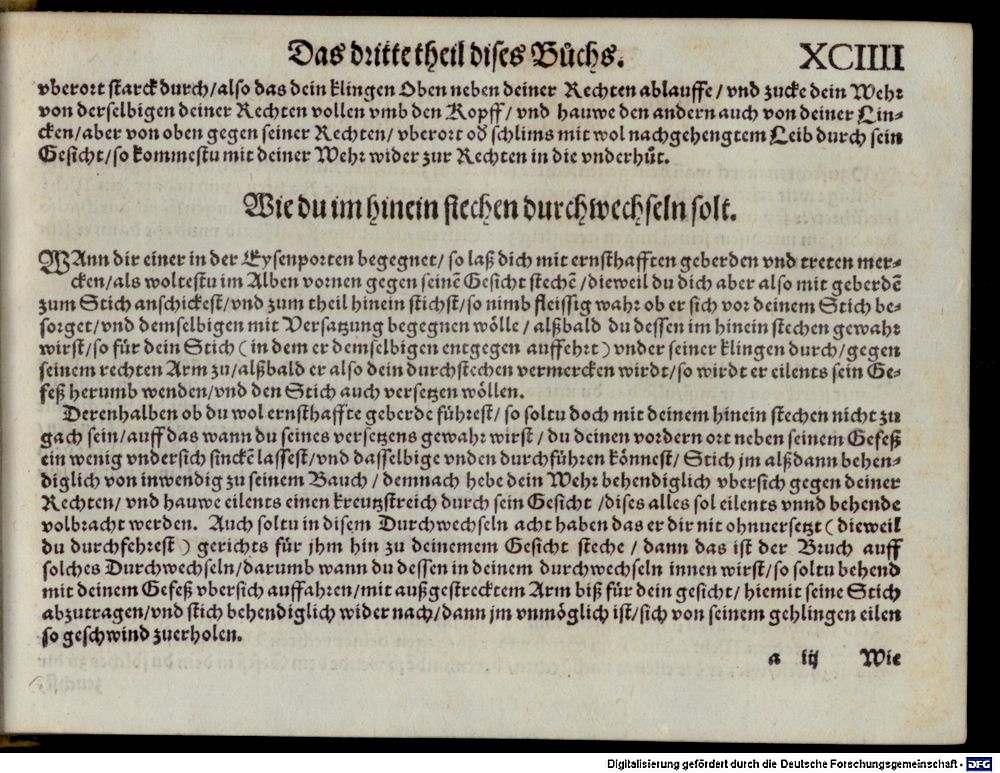 Das dritte theil dises Bůchs. XCIIII
vberort starck durch/also das dein klingen Oben neben deiner Rechten ablauffe/vnd zucke dein Wehr
von derselbigen deiner Rechten vollen vmb den Kopff/vnd hauwe den andern auch von deiner Lin-
cken/aber von oben gegen seiner Rechten/vberort oď schlims mit wol nachgehengtem Leib durch sein
Gesicht/so kommestu mit deiner Wehr wider zur Rechten in die vnderhůt.
Wie du im hinein stechen durchwechseln solt.
WAnn dir einer in der Eysenporten begegnet/so laß dich mit ernsthafften geberden vnd treten mer-
cken/als woltestu im Alben vornen gegen seinē Gesicht stechē/dieweil du dich aber also mit geberdē
zum Stich anschickest/vnd zum theil hinein stichst/so nimb fleissig wahr ob er sich vor deinem Stich be-
sorget/vnd demselbigen mit Versatzung begegnen wölle/alßbald du dessen im hinein stechen gewahr
wirst/so für dein Stich (in dem er demselbigen entgegen auffehrt) vnder seiner klingen durch/gegen
seinem rechten Arm zu/alßbald er also dein durchstechen vermercken wirdt/so wirdt er eilents sein Ge-
feß herumb wenden/vnd den Stich auch versetzen wöllen.
Derenhalben ob du wol ernsthaffte geberde führest/so soltu doch mit deinem hinein stechen nicht zu
gach sein/auff das wann du seines versetzens gewahr wirst/du deinen vordern ort neben seinem Gefeß
ein wenig vndersich sinckē lassest/vnd dasselbige vnden durchführen könnest/Stich jm alßdann behen-
diglich von inwendig zu seinem Bauch/demnach hebe dein Wehr behendiglich vbersich gegen deiner
Rechten/vnd hauwe eilents einen kreutzstreich durch sein Gesicht/dises alles sol eilents vnnd behende
volbracht werden. Auch soltu in disem Durchwechseln acht haben das er dir nit ohnuersetzt (dieweil
du durchfehrest) gerichts für jhm hin zu deinemem Gesicht steche/dann das ist der Bruch auff
solches Durchwechseln/darumb wann du dessen in deinem durchwechseln innen wirst/so soltu behend
mit deinem Gefeß vbersich auffahren/mit außgestrecktem Arm biß für dein gesicht/hiemit seine Stich
abzutragen/vnd stich behendiglich wider nach/dann jm vnmöglich ist/sich von seinem gehlingen eilen
so geschwind zuerholen.
a iij Wie
Digitalisierung gefördert durch die Deutsche Forschungsgemeinschaft - DFG